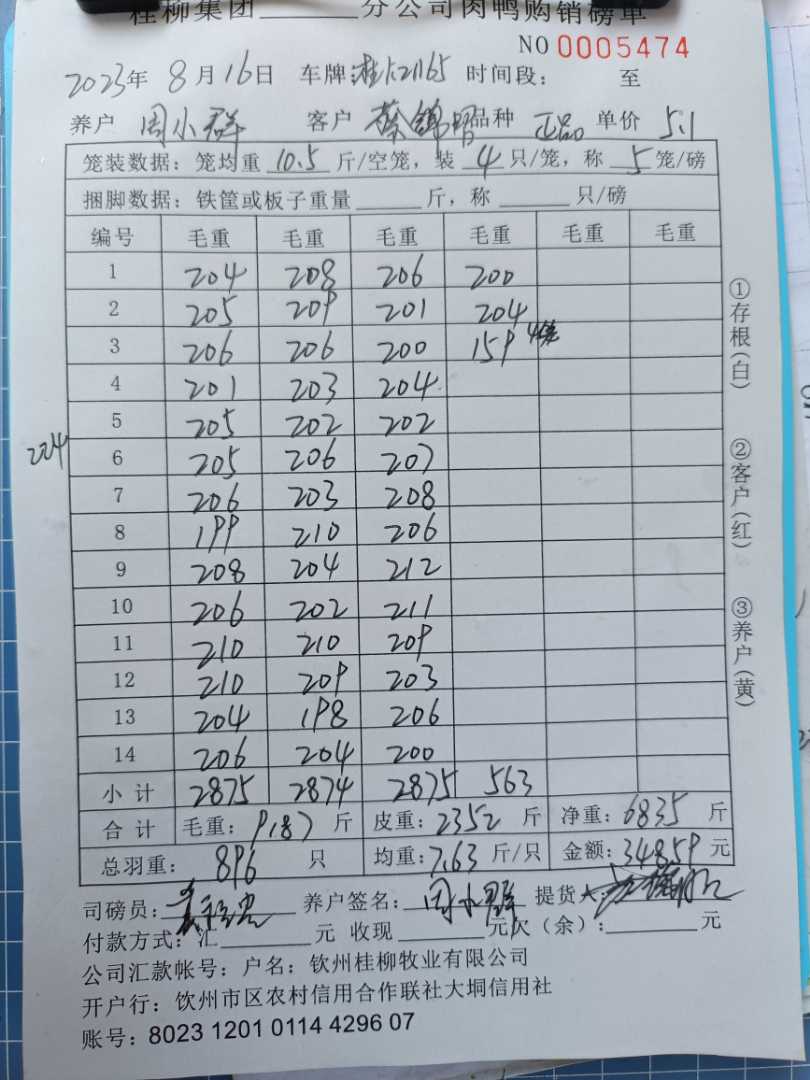 桂柳集团______分公司肉鸭购销磅单
NO 0005474
2023年 8月16日 车牌: 时间段: 至
养户 周小群 客户 蔡锦 品种 正品 单价 5.1
笼装数据:笼均重 10.5 斤/空笼,装 4 只/笼,称 5 笼/磅
捆脚数据:铁筐或板子重量______斤,称______只/磅
编号 毛重 毛重 毛重 毛重 毛重 毛重
1 204 208 206 200
2 205 209 201 204
3 206 206 200 159 4笼
4 201 203 204
5 205 202 202
224
6 205 206 207
7 206 203 208
8 199 210 206
9 208 204 212
10 206 202 211
11 210 210 209
12 210 209 203
13 204 198 206
14 206 204 200
小计 2875 2874 2875 563
合计 毛重: 9187 斤 皮重: 2352 斤 净重: 6835 斤
总羽重: 896 只 均重: 7.63 斤/只 金额: 34859 元
司磅员: 养户签名: 周小群 提货人:
付款方式:汇______元 收现______元欠(余):______元
公司汇款帐号:户名:钦州桂柳牧业有限公司
开户行:钦州市区农村信用合作联社大垌信用社
账号:8023 1201 0114 4296 07
①存根(白)
②客户(红)
③养户(黄)